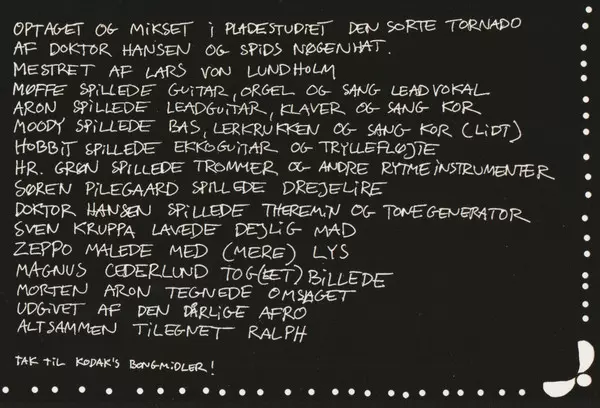 OPTAGET OG MIKSET I PLADESTUDIET DEN SORTE TORNADO
AF DOKTOR HANSEN OG SPIDS NØGENHAT.
MESTRET AF LARS VON LUNDHOLM
MØFFE SPILLEDE GUITAR, ORGEL OG SANG LEADVOKAL
ARON SPILLEDE LEADGUITAR, KLAVER OG SANG KOR
MOODY SPILLEDE BAS, LERKRUKKEN OG SANG KOR (LIDT)
HOBBIT SPILLEDE EKKOGUITAR OG TRYLLEFLØJTE
HR. GRØN SPILLEDE TROMMER OG ANDRE RYTMEINSTRUMENTER
SØREN PILEGAARD SPILLEDE DREJELIRE
DOKTOR HANSEN SPILLEDE THEREMIN OG TONEGENERATOR
SVEN KRUPPA LAVEDE DEJLIG MAD
ZEPPO MALEDE MED (MERE) LYS
MAGNUS CEDERLUND TOG (ET) BILLEDE
MORTEN ARON TEGNEDE OMSLAGET
UDGIVET AF DEN DÅRLIGE AFRO
ALTSAMMEN TILEGNET RALPH
TAK TIL KODAK'S BONGMIDLER!